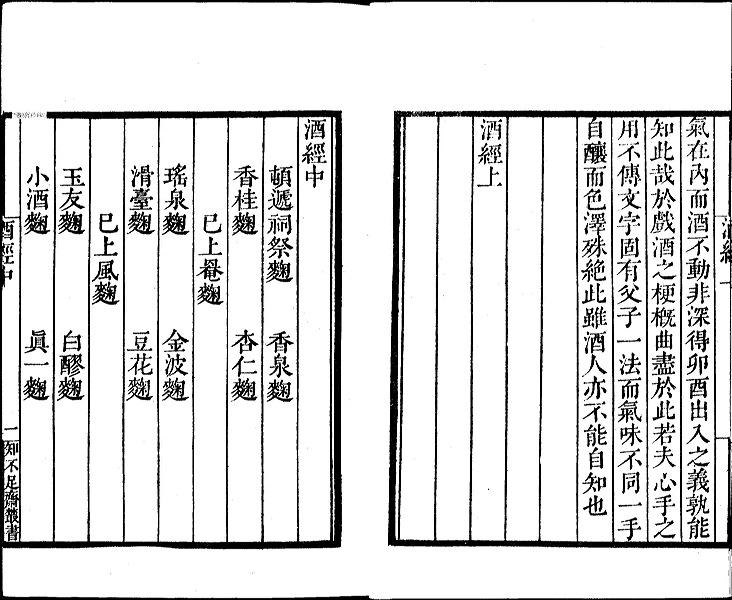 氣在內而酒不動非深得卯酉出入之義孰能
知此哉於戲酒之梗概曲盡於此若夫心手之
用不傳文字固有父子一法而氣味不同一手
自釀而色澤殊絶此雖酒人亦不能自知也
酒經上
酒經中
頓遞祠祭麴 香泉麴
香桂麴 杏仁麴
已上罨麴
瑤泉麴 金波麴
滑臺麴 豆花麴
已上風麴
玉友麴 白醪麴
小酒麴 眞一麴
酒經中 一 知不足齋叢書